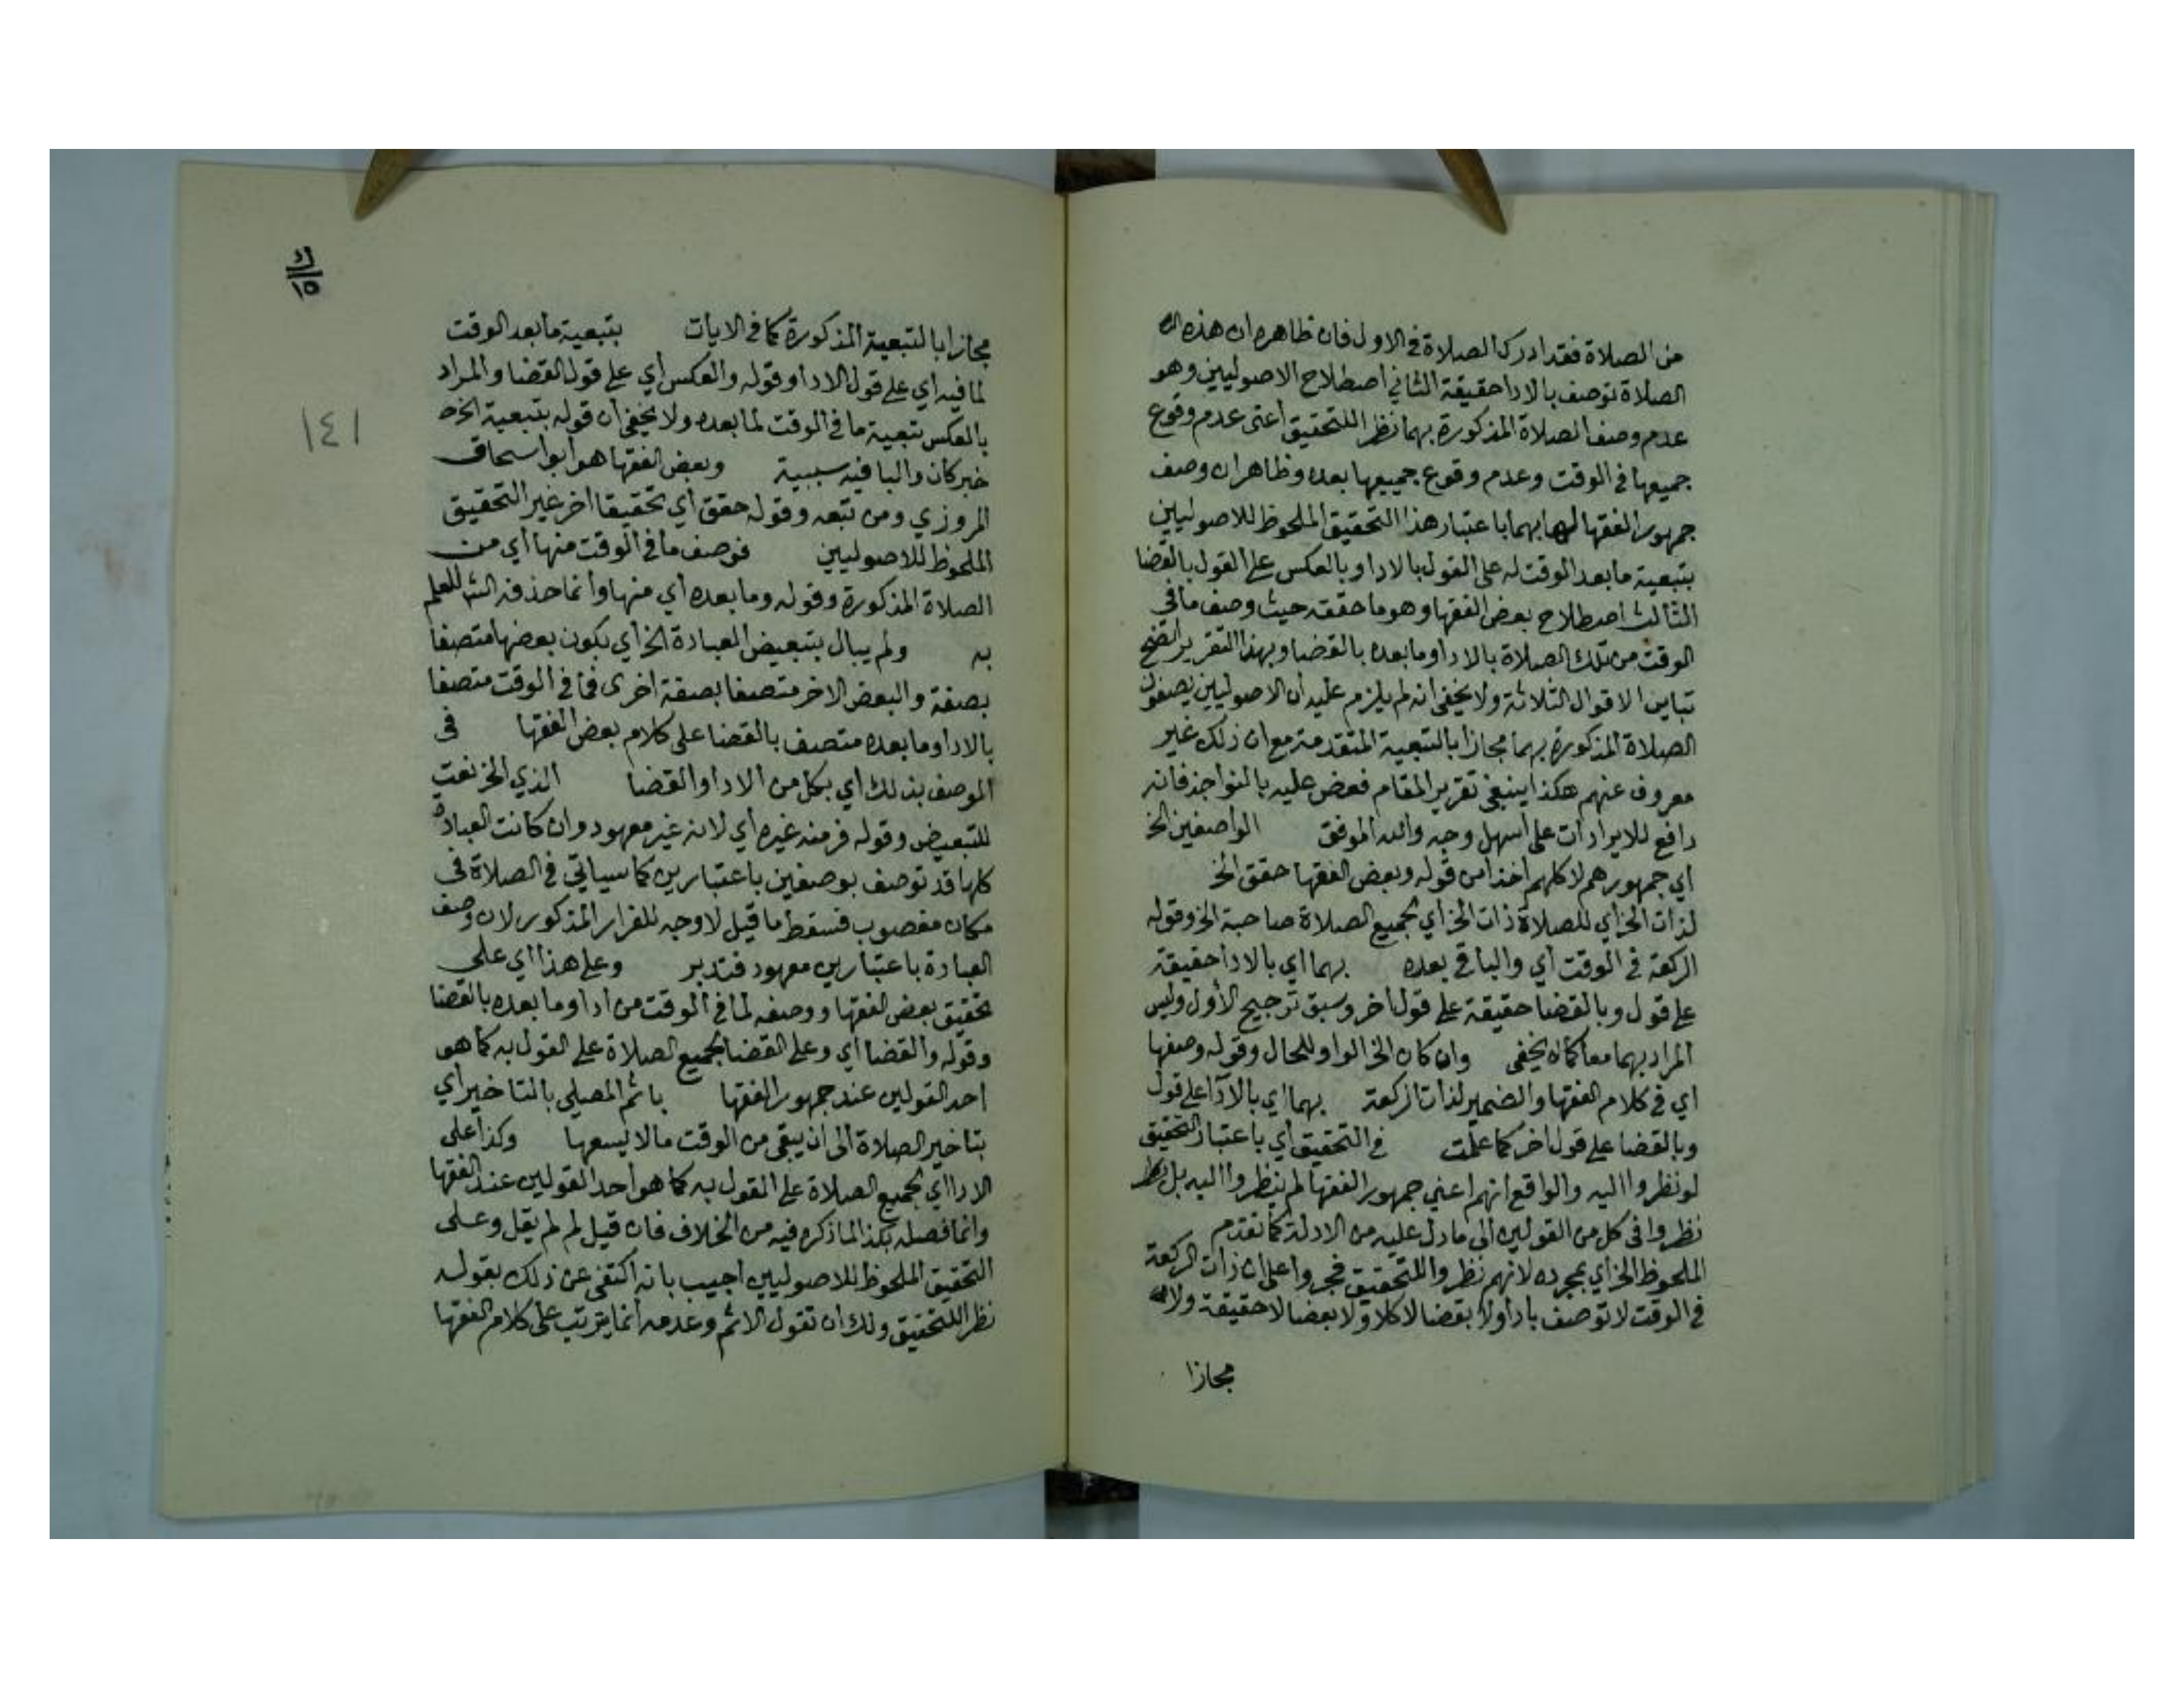 من الصلاة فقد ادرك الصلاة في الاول فان ظاهره ان هذه
الصلاة توصف بالادا حقيقة الثاني اصطلاح الاصوليين وهو
عدم وصف الصلاة المذكورة بهما نظرا للتحقيق اعني عدم وقوع
جميعها في الوقت وعدم وقوع جميعها بعده وظاهر ان وصف
جمهور الفقها لها بهما باعتبار هذا التحقيق الملحوظ للاصوليين
بتبعية ما بعد الوقت له على القول بالادا وبالعكس على القول بالقضا
الثالث اصطلاح بعض الفقها وهو ما حققه حيث وصف ما في
الوقت من تلك الصلاة بالادا وما بعده بالقضا وبهذا التقرير اتضح
تباين الاقوال الثلاثة ولا يخفى انه لم يلزم عليه ان الاصوليين يصفون
الصلاة المذكورة بهما مجازا بالتبعية المتقدمة مع ان ذلك غير
معروف عنهم هكذا ينبغي تقرير المقام فعض عليه بالنواجذ فانه
دافع للايرادات على اسهل وجه والله الموفق الواصفين الخ
اي جمهورهم لا كلهم اخذا من قوله وبعض الفقها حقق الخ
لذات الخ اي للصلاة ذات الخ اي لجميع الصلاة صاحبة الخ وقوله
الركعة في الوقت اي والباقي بعده بهما اي بالادا حقيقة
على قول وبالقضا حقيقة على قول اخر وسبق ترجيح الأول وليس
المراد بهما معا كما لا يخفى وان كان الخ الواو للحال وقوله وصفها
اي في كلام الفقها والضمير لذات الركعة بهما اي بالادا على قول
وبالقضا على قول اخر كما علمت في التحقيق اي باعتبار التحقيق
لو نظروا اليه والواقع انهم اعني جمهور الفقها لم ينظروا اليه بل
نظروا في كل من القولين الى ما دل عليه من الادلة كما تقدم
الملحوظ الخ اي بمجرده لانهم نظروا للتحقيق فجروا على ان ذات الركعة
في الوقت لا توصف بادا ولا بقضا لا كلا ولا بعضا لا حقيقة ولا
مجازا
١٥
١٤١
مجازا بالتبعية المذكورة كما في الايات بتبعية ما بعد الوقت
لما فيه اي على قول الادا وقوله والعكس اي على قول القضا والمراد
بالعكس تبعية ما في الوقت لما بعده ولا يخفى ان قوله بتبعية الخ
خبر كان والبا فيه سببية وبعض الفقها هو ابو اسحاق
المروزي ومن تبعه وقوله حقق اي تحقيقا اخر غير التحقيق
الملحوظ للاصوليين فوصف ما في الوقت منها اي من
الصلاة المذكورة وقوله وما بعده اي منها وانما حذفه الش للعلم
به ولم يبال بتبعيض العبادة الخ اي بكون بعضها متصفا
بصفة والبعض الاخر متصفا بصفة اخرى فما في الوقت متصفا
بالادا وما بعده متصف بالقضا على كلام بعض الفقها في
الوصف بذلك اي بكل من الادا والقضا الذي الخ نعت
للتبعيض وقوله فر منه غيره اي لانه غير معهود وان كانت العبادة
كلها قد توصف بوصفين باعتبارين كما سياتي في الصلاة في
مكان مغصوب فسقط ما قيل لا وجه للفرار المذكور لان وصف
العبادة باعتبارين معهود فتدبر وعلى هذا اي على
تحقيق بعض الفقها ووصفه لما في الوقت من ادا وما بعده بالقضا
وقوله والقضا اي وعلى القضا لجميع الصلاة على القول به كما هو
احد القولين عند جمهور الفقها ياثم المصلي بالتاخير اي
بتاخير الصلاة الى ان يبقى من الوقت ما لا يسعها وكذا على
الادا اي لجميع الصلاة على القول به كما هو احد القولين عند الفقها
وانما فصله بكذا لما ذكره فيه من الخلاف فان قيل لم لم يقل وعلى
التحقيق الملحوظ للاصوليين اجيب بانه اكتفى عن ذلك بقوله
نظرا للتحقيق ولك ان تقول الاثم وعدمه انما يترتب على كلام الفقها